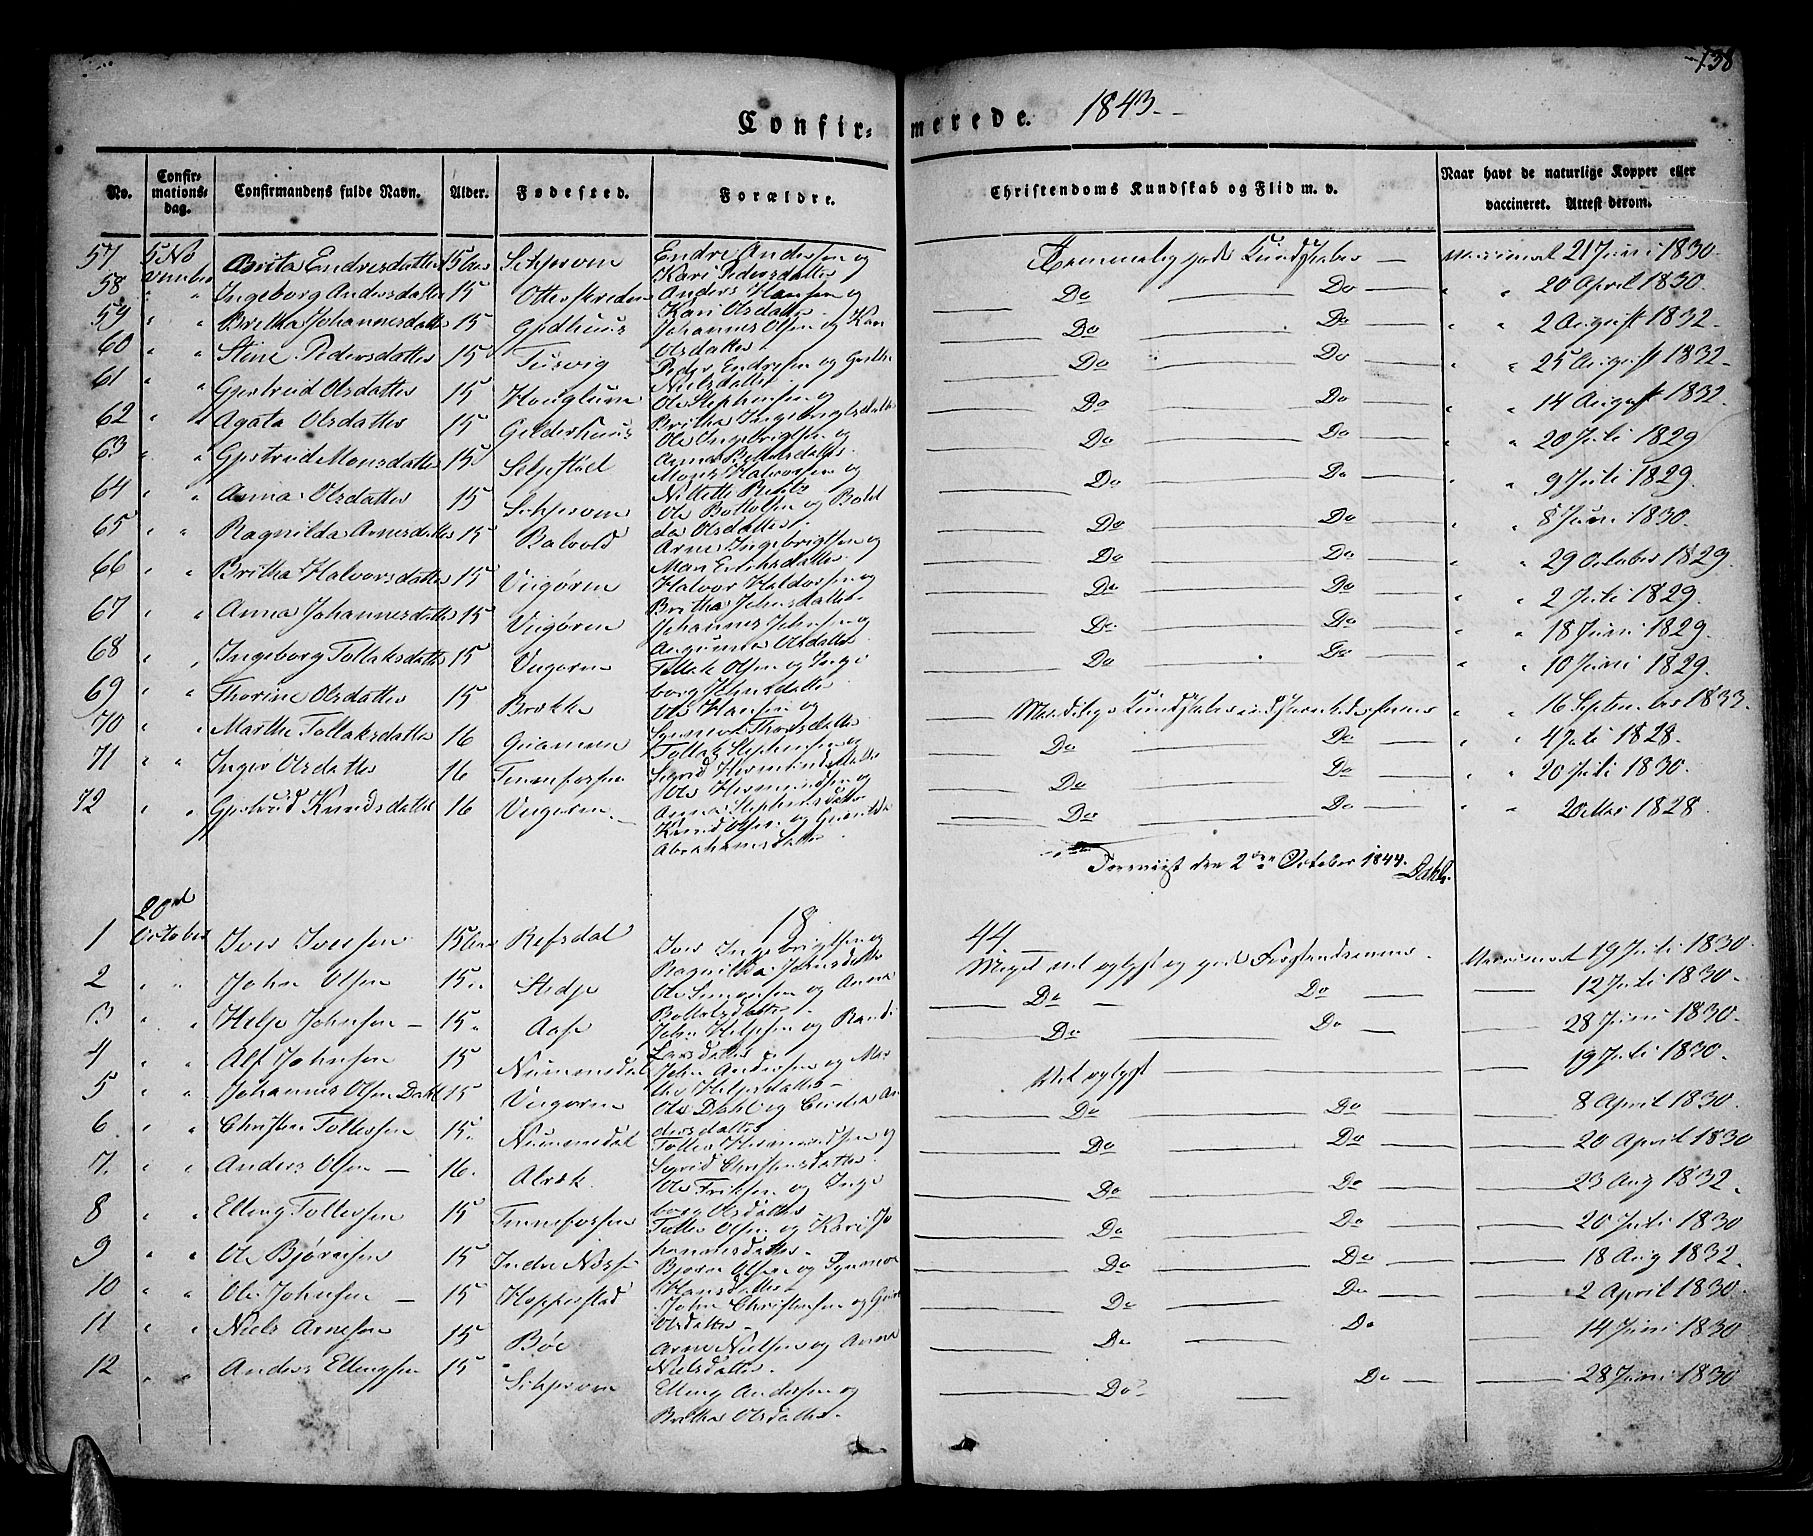 138
Confirmerede. 1843.
No. Confirmationsdag. Confirmandens fulde Navn. Alder. Fødested. Forældre. Christendoms Kundskab og Flid m. v. Naar havt de naturlige Kopper eller vaccineret. Attest derom.
57 5 November Brita Endresdatter 15 Endre Andersen og Kari Pedersdatter 21 Juni 1830.
58 " " Ingeborg Andersdatter 15 Otterskreden Anders Hansen og Kari Olsdatter Do Do " " 20 April 1830.
59 " " Britha Johannesdatter 15 Johannes Olsen og Kari Olsdatter Do Do " " 2 August 1832.
60 " " Stine Pedersdatter 15 Tusvig Peder Endresen og Nielsdatter Do Do " " 25 August 1832.
61 " " Gjertrud Olsdatter 15 Houglum Ole Stephensen og Britha Ingebrigtsdatter Do Do " " 14 August 1832.
62 " " Agata Olsdatter 15 Ole Ingebrigtsen og Anna Do Do " " 20 Juli 1829
63 " " Gjertrud Monsdatter 15 Mons Halvorsen og Do Do " " 9 Juli 1829.
64 " " Anna Olsdatter 15 Ole Bottolsen og Olsdatter Do Do " " 8 Juni 1830.
65 " " Ragnilda Arnesdatter 15 Balvold Arne Ingebrigtsen og Do Do " " 29 October 1829.
66 " " Britha Halvorsdatter 15 Viigøren Halvor Haldorsen og Britha Johnsdatter Do Do " " 2 Juli 1829.
67 " " Anna Johannesdatter 15 Viigøren Johannes Johnsen og Olsdatter Do Do " " 18 Juni 1829.
68 " " Ingeborg Tollaksdatter 15 Viigøren Tollak Olsen og Ingeborg Johnsdatter Do Do " " 10 Juni 1829.
69 " " Thorine Olsdatter 15 Brække Ole Hansen og Maadelig Kundskab " " 16 September 1833.
70 " " Marthe Tollaksdatter 16 Tollak Stephensen og Sigrid Do Do " " 4 Juli 1828.
71 " " Inger Olsdatter 16 Tennefossen Ole Hermundsen og Anna Stephensdatter Do Do " " 20 Juli 1830.
72 " " Gjertrud Knudsdatter 16 Viigøren Knud Olsen og Abrahamsdatter Do Do " " 1828.
den 2den October 1844. Dahl.
1844
1 20 October Iver Iversen 15 Refsdal Iver Ingebrigtsen og Ragnilda Johnsdatter Meget vel oplyst og god 19 Juli 1830.
2 " " John Olsen 15 Stedje Ole Simonsen og Anna Do Do 12 Juli 1830.
3 " " Helje Johnsen 15 Aase John Heljesen og Randi Larsdatter Do Do 28 Juni 1830.
4 " " Alf Johnsen 15 Nummedal John Andersen og Marthe Heljesdatter Vel oplyst 19 Juli 1830.
5 " " Johannes Olsen Dahl 15 Viigøren Ole Dahl og Andersdatter Do Do 8 April 1830.
6 " " Christen Tollefsen 15 Nummedal Tollev Hermundsen og Sigrid Christensdatter Do Do 20 April 1830
7 " " Anders Olsen 16 Alræk Ole Eriksen og Ingeborg Olsdatter Do Do 23 Aug 1832.
8 " " Elling Tollefsen 15 Tennefossen Tollev Olsen og Kari Johannesdatter Do Do 20 Juli 1830
9 " " Ole Bjørnsen 15 Indre Næsse Bjørn Olsen og Synneve Hansdatter Do Do 18 Aug 1832.
10 " " Ole Johnsen 15 Hopperstad John Christensen og Olsdatter Do Do 2 April 1830.
11 " " Niels Arnesen 15 Bøe Arne Nielsen og Anna Nielsdatter Do Do 14 Juni 1830
12 " " Anders Ellingsen 15 Elling Andersen og Britha Olsdatter Do Do 28 Juni 1830